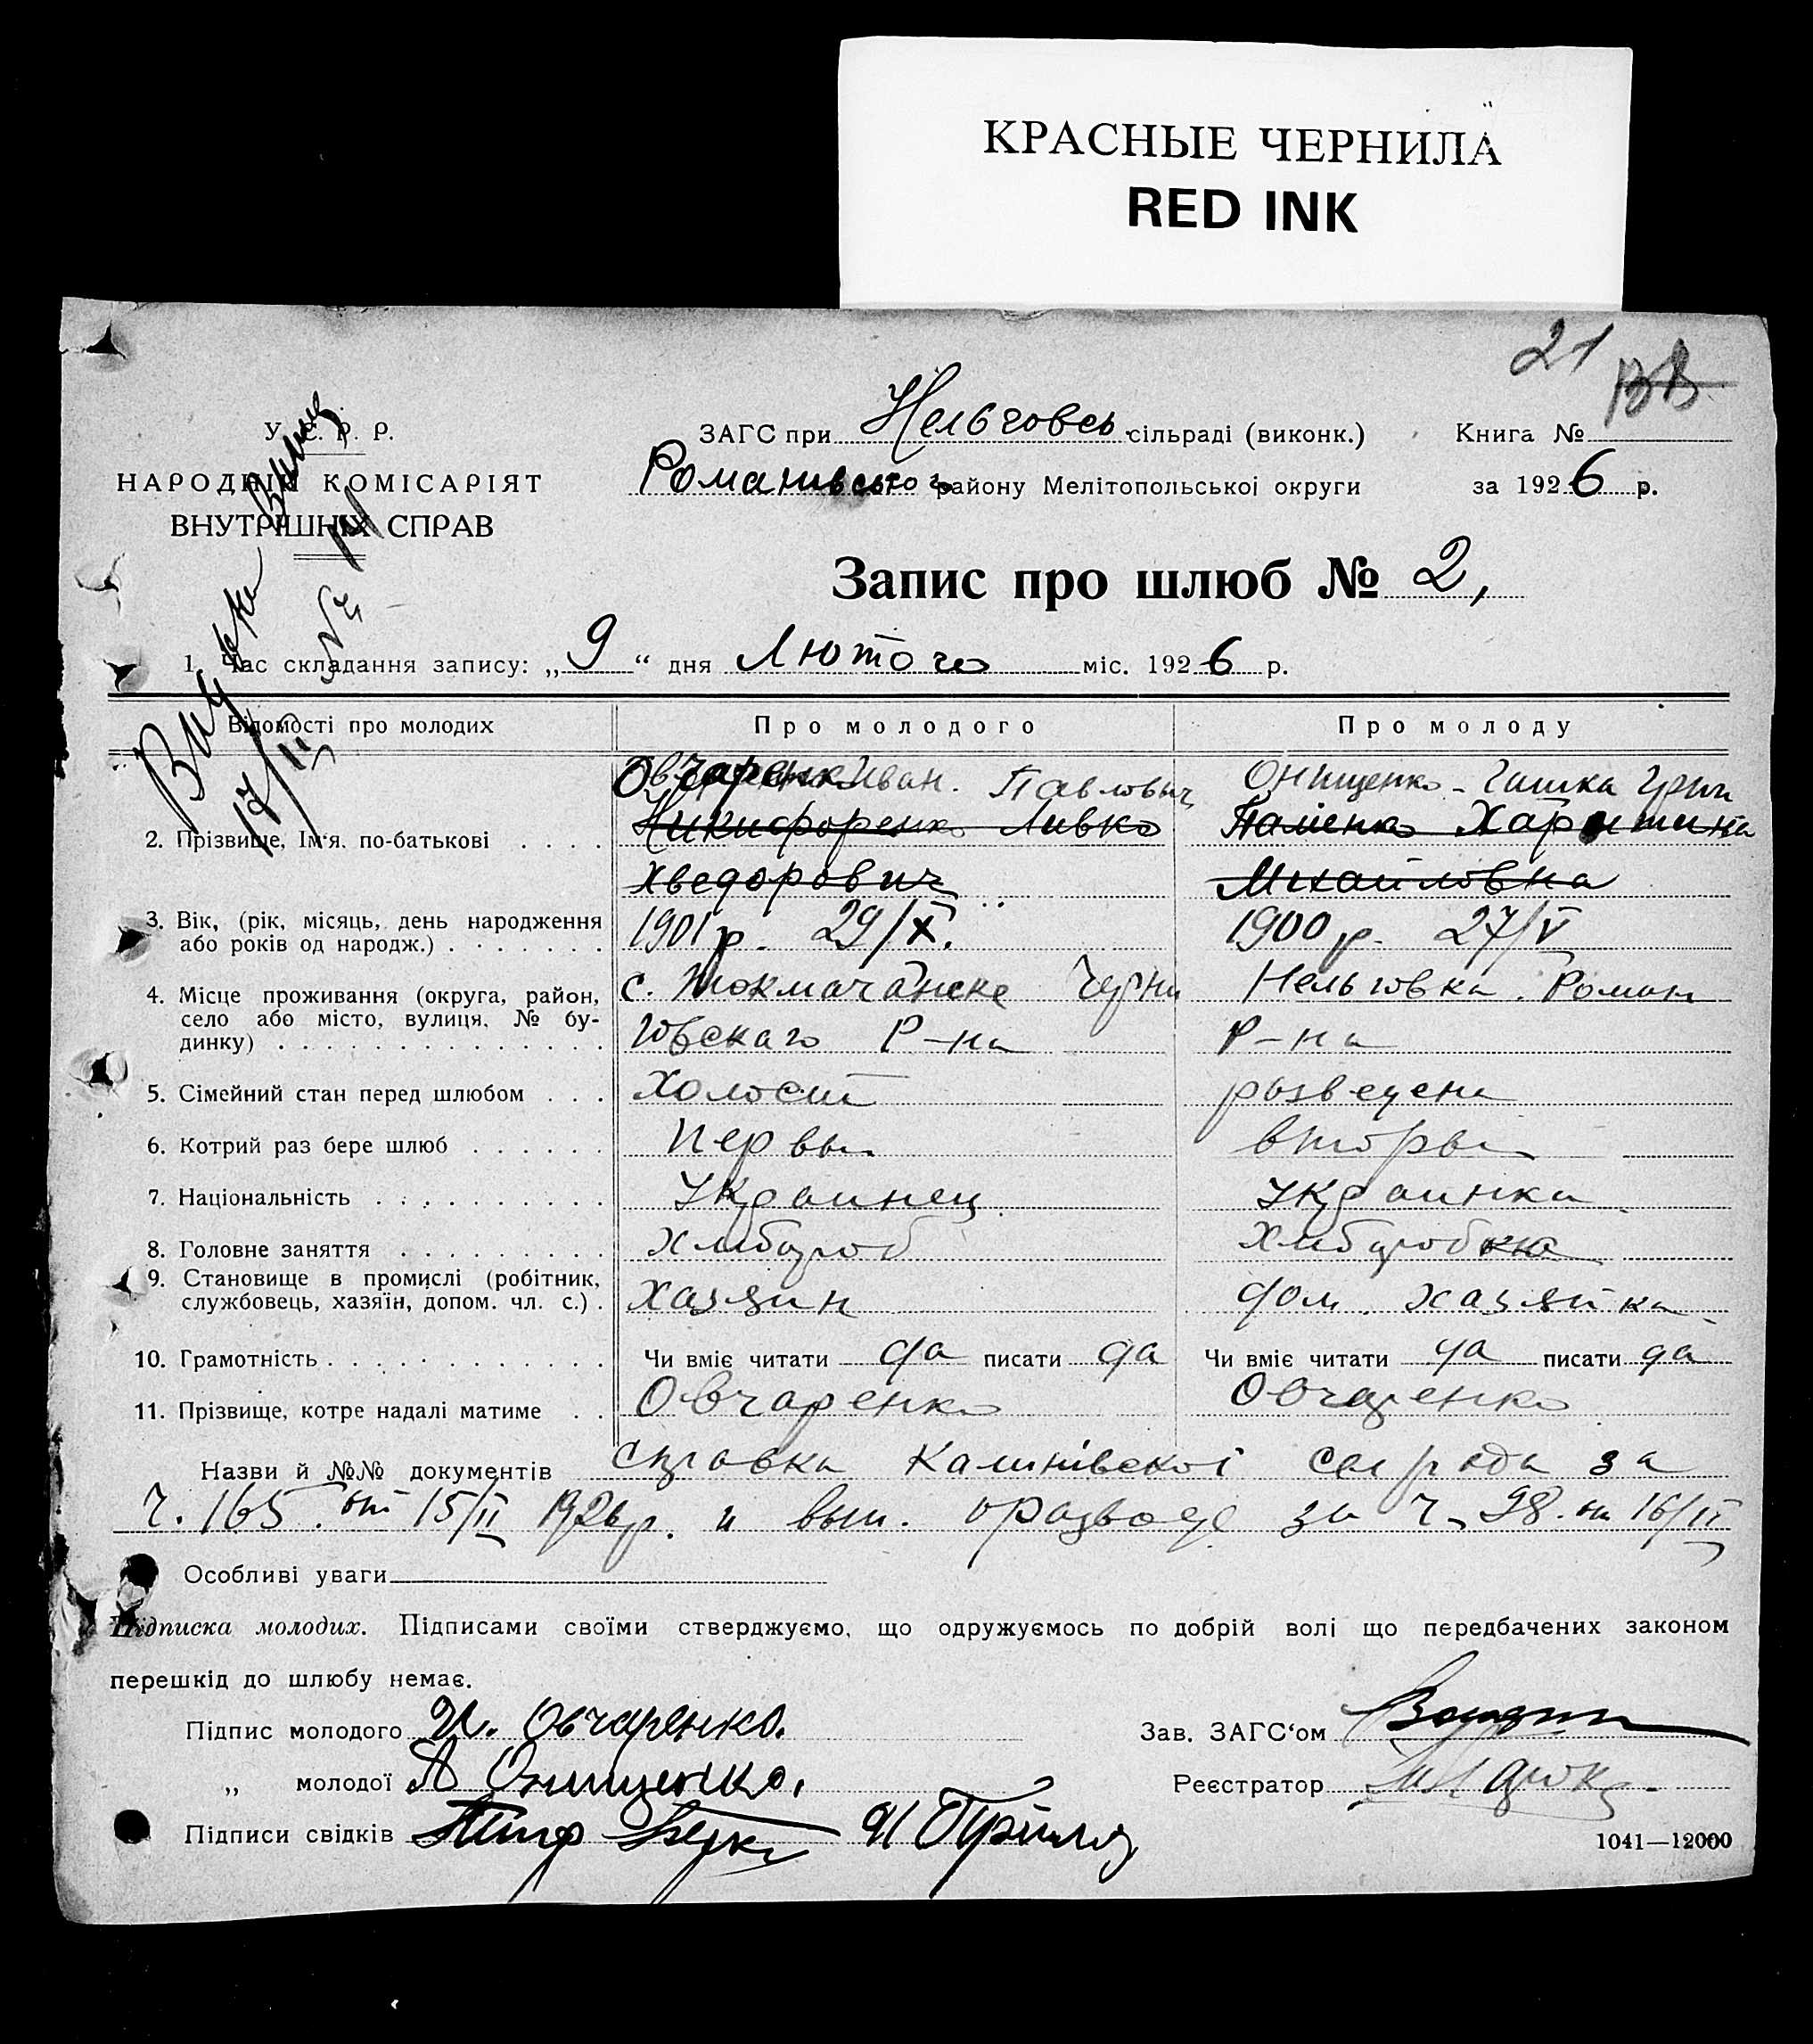 КРАСНЫЕ ЧЕРНИЛА
RED INK
21
У. С. Р. Р.
НАРОДНІЙ КОМІСАРІЯТ
ВНУТРІШНІХ СПРАВ
ЗАГС при Нельговсь. сільраді (виконк.) Книга №
Романивського району Мелітопольської округи за 1926 р.
Запис про шлюб № 2,
1. Час складання запису: „9“ дня Лютого міс. 1926 р.
17/II № 14
Відомості про молодих Про молодого Про молоду
Овчаренко Иван. Павлович Онищенко - Гашка Григ
2. Прізвище, Ім'я, по-батькові . . . . Никифоренко Ливко Харитина
Хведорович Михайловна
3. Вік, (рік, місяць, день народження
або років од народж.) . . . . . . . 1901 р. 29/X. 1900 р. 27/V
4. Місце проживання (округа, район,
село або місто, вулиця, № бу-
динку) . . . . . . . . . . . . . .
с. Токмачанске Черни Нельговка. Роман
говскаго Р-на Р-на
5. Сімейний стан перед шлюбом . . . Холост розведена
6. Котрий раз бере шлюб . . . . . . первы вторы
7. Національність . . . . . . . . . Украинец Украинка
8. Головне заняття . . . . . . . . . Хлибороб Хлиборобка
9. Становище в промислі (робітник,
службовець, хазяїн, допом. чл. с.) . Хазяин дом. хазяйка
10. Грамотність . . . . . . . . . . . . Чи вміє читати да писати да Чи вміє читати да писати да
11. Прізвище, котре надалі матиме . . Овчаренко Овчаренко
Назви й №№ документів справка Калинівскоі селради за
ч. 165. от 15/II 1926 р. и вып. о разводе за ч. 98. от 16/II
Особливі уваги
Підписка молодих. Підписами своїми стверджуємо, що одружуємось по добрій волі що передбачених законом
перешкід до шлюбу немає.
Підпис молодого И. Овчаренко. Зав. ЗАГС'ом
„ молодої А Онищенко. Реєстратор
Підписи свідків
1041—12000